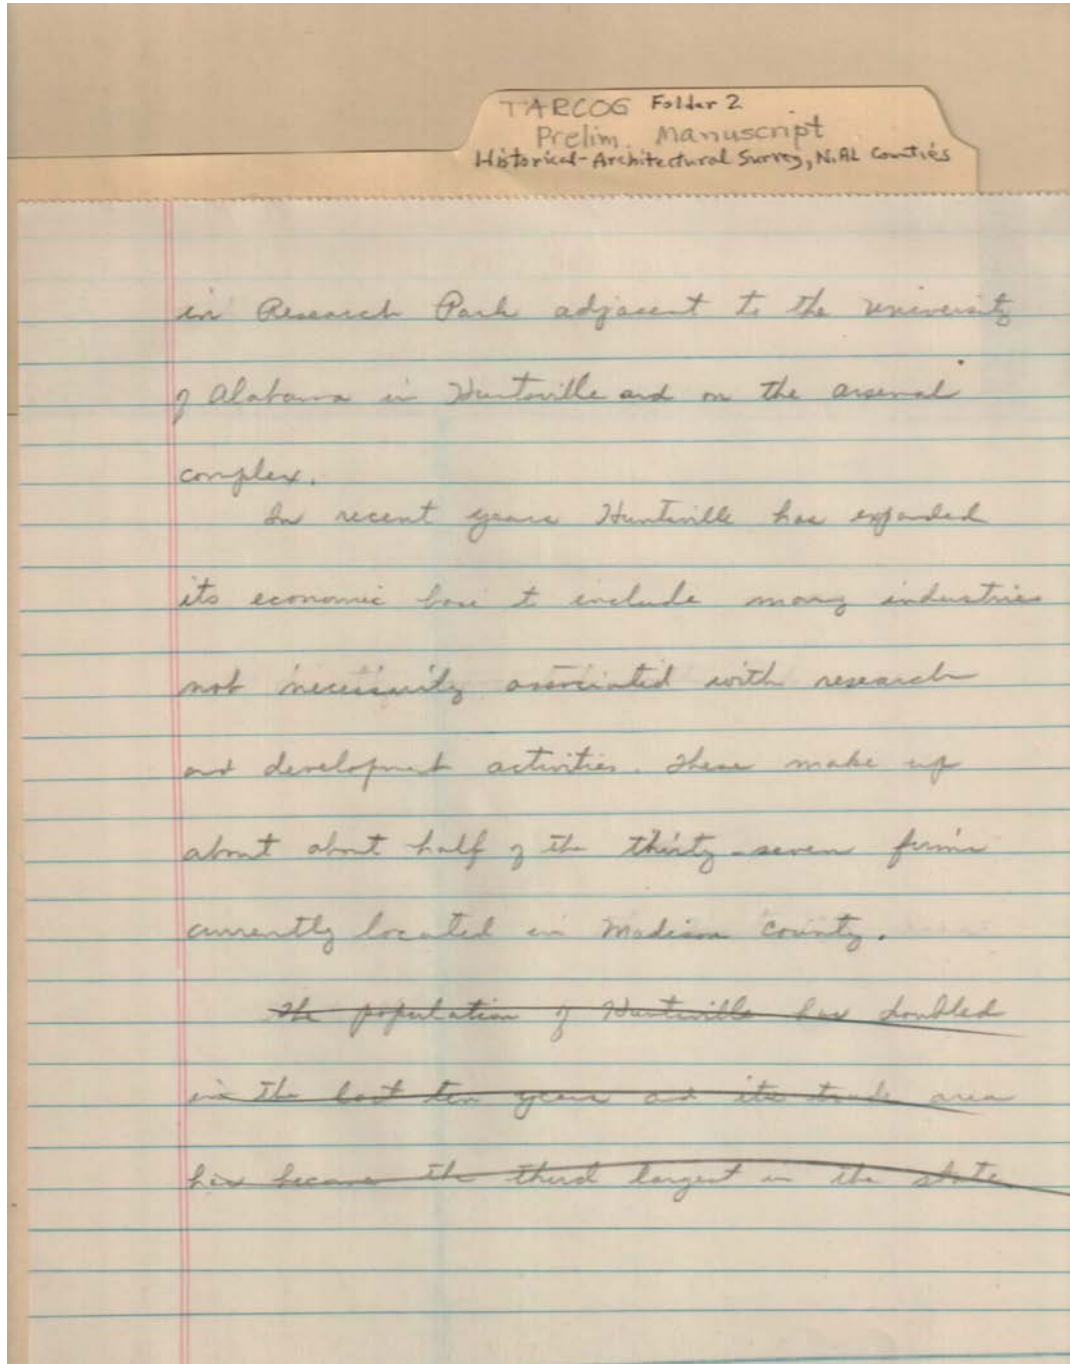 TARCOG Folder 2
Prelim. Manuscript
Historical-Architectural Survey, N. AL Counties
in Research Park adjacent to the University
of Alabama in Huntsville and on the arsenal
complex.
In recent years Huntsville has expanded
its economic base to include many industries
not necessarily associated with research
and development activities. These make up
about about half of the thirty-seven firms
currently located in Madison County.
The population of Huntsville has doubled
in the last ten years and its trade area
has became the third largest in the state